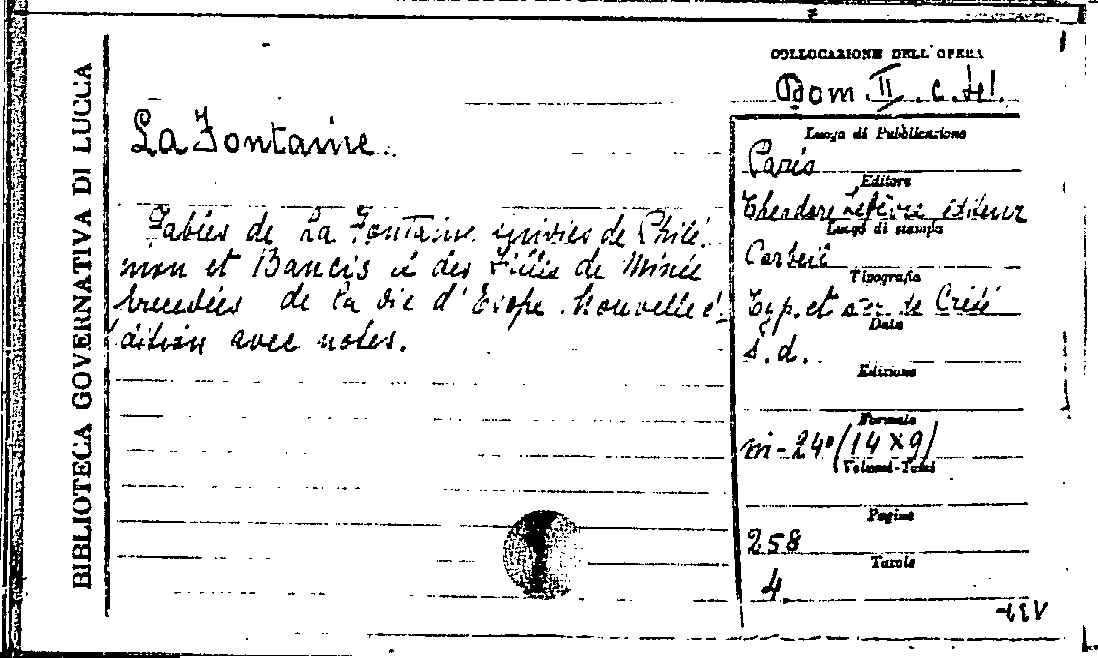 BIBLIOTECA GOVERNATIVA DI LUCCA
COLLOCAZIONE DELL'OPERA
Dom. II. c. 41.
La Fontaine.
Luogo di Pubblicazione
Paris
Editore
Théodore Lefèvre éditeur
Luogo di stampa
Corbeil
Tipografia
Typ. et de Crété
Data
s.d.
Edizione
Formato
in-24° (14 x 9)
Volumi-Tomi
Pagine
258
Tavole
4.
Fables de La Fontaine suivies de Philé-
mon et Baucis et des Filles de Minée
précédées de la vie d'Esope. Nouvelle é-
dition avec notes.